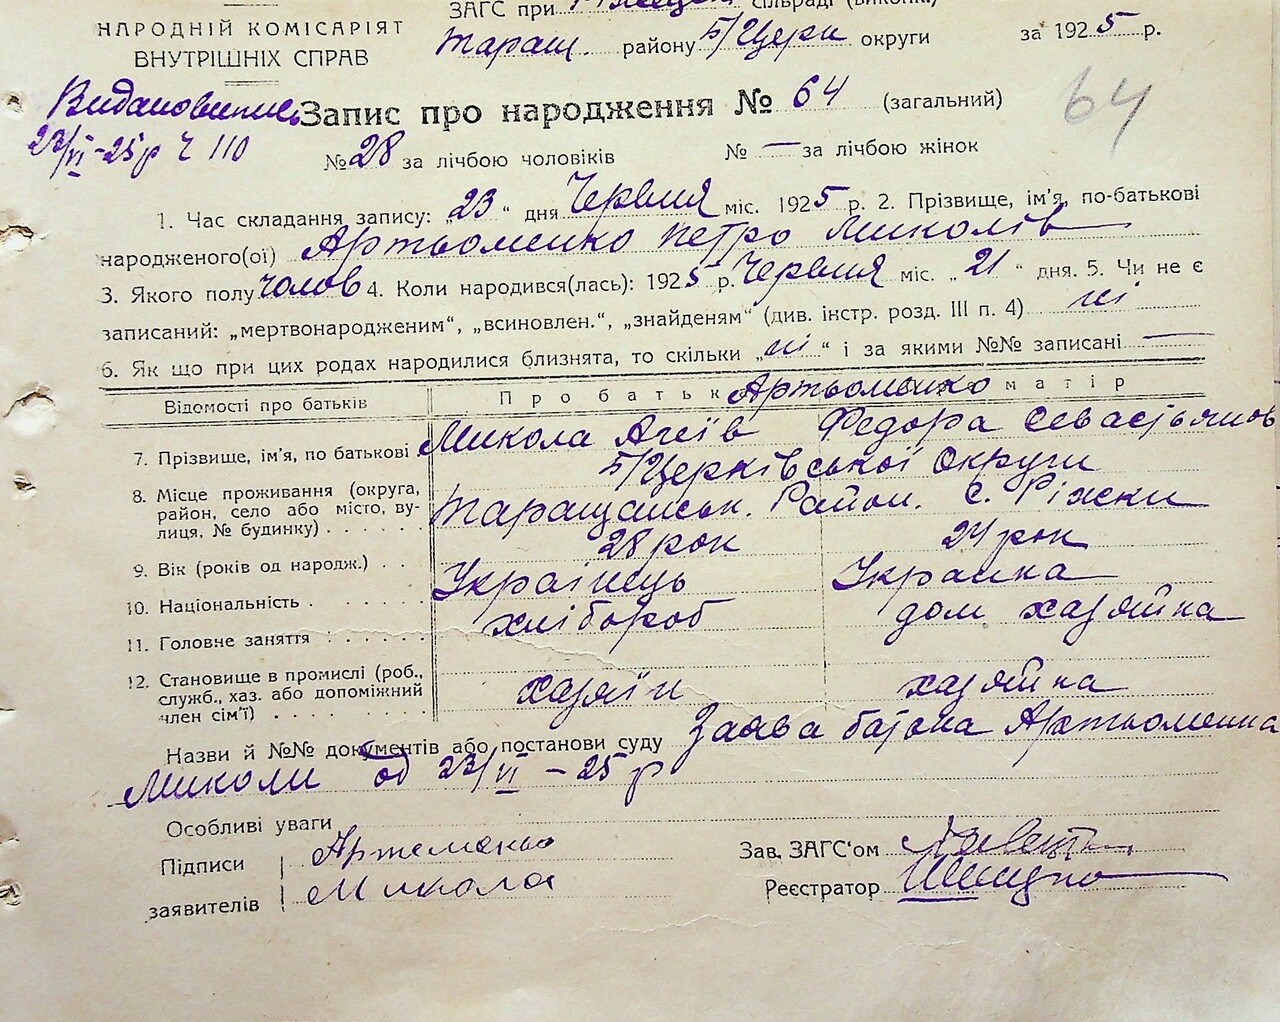 ЗАГС при сільраді (виконк.)
НАРОДНІЙ КОМІСАРІЯТ
ВНУТРІШНІХ СПРАВ
Таращ. району Б/Церк округи за 1925 р.
Видано випись
23/VI-25 р Ч 110
Запис про народження № 64 (загальний)
64
№ 28 за лічбою чоловіків № — за лічбою жінок
1. Час складання запису: „23“ дня Червня міс. 1925 р. 2. Прізвище, ім’я, по-батькові
народженого(ої) Артьоменко Петро Миколів
3. Якого полу чолов 4. Коли народився(лась): 1925 р. Червня міс. „21“ дня. 5. Чи не є
записаний: „мертвонародженим“, „всиновлен.“, „знайденям“ (див. інстр. розд. III п. 4) ні
6. Як що при цих родах народилися близнята, то скільки „ні“ і за якими №№ записані —
Відомості про батьків Про батьк Артьоменко матір
7. Прізвище, ім’я, по батькові Микола Агеїв Федора Севастьянов
Б/Церківської Округи
8. Місце проживання (округа,
район, село або місто, ву-
лиця, № будинку) Таращанськ. Район. с. Ріжки
9. Вік (років од народж.) 28 рок 24 рок
10. Національність Українець Украінка
11. Головне заняття хлібороб дом хазяйка
12. Становище в промислі (роб.,
служб., хаз. або допоміжний
член сім’ї) хазяїн хазяйка
Назви й №№ документів або постанови суду Заява батька Артьоменка
Миколи од 23/VI-25 р
Особливі уваги
Підписи Артеменко Зав. ЗАГС‘ом
заявителів Микола Реєстратор